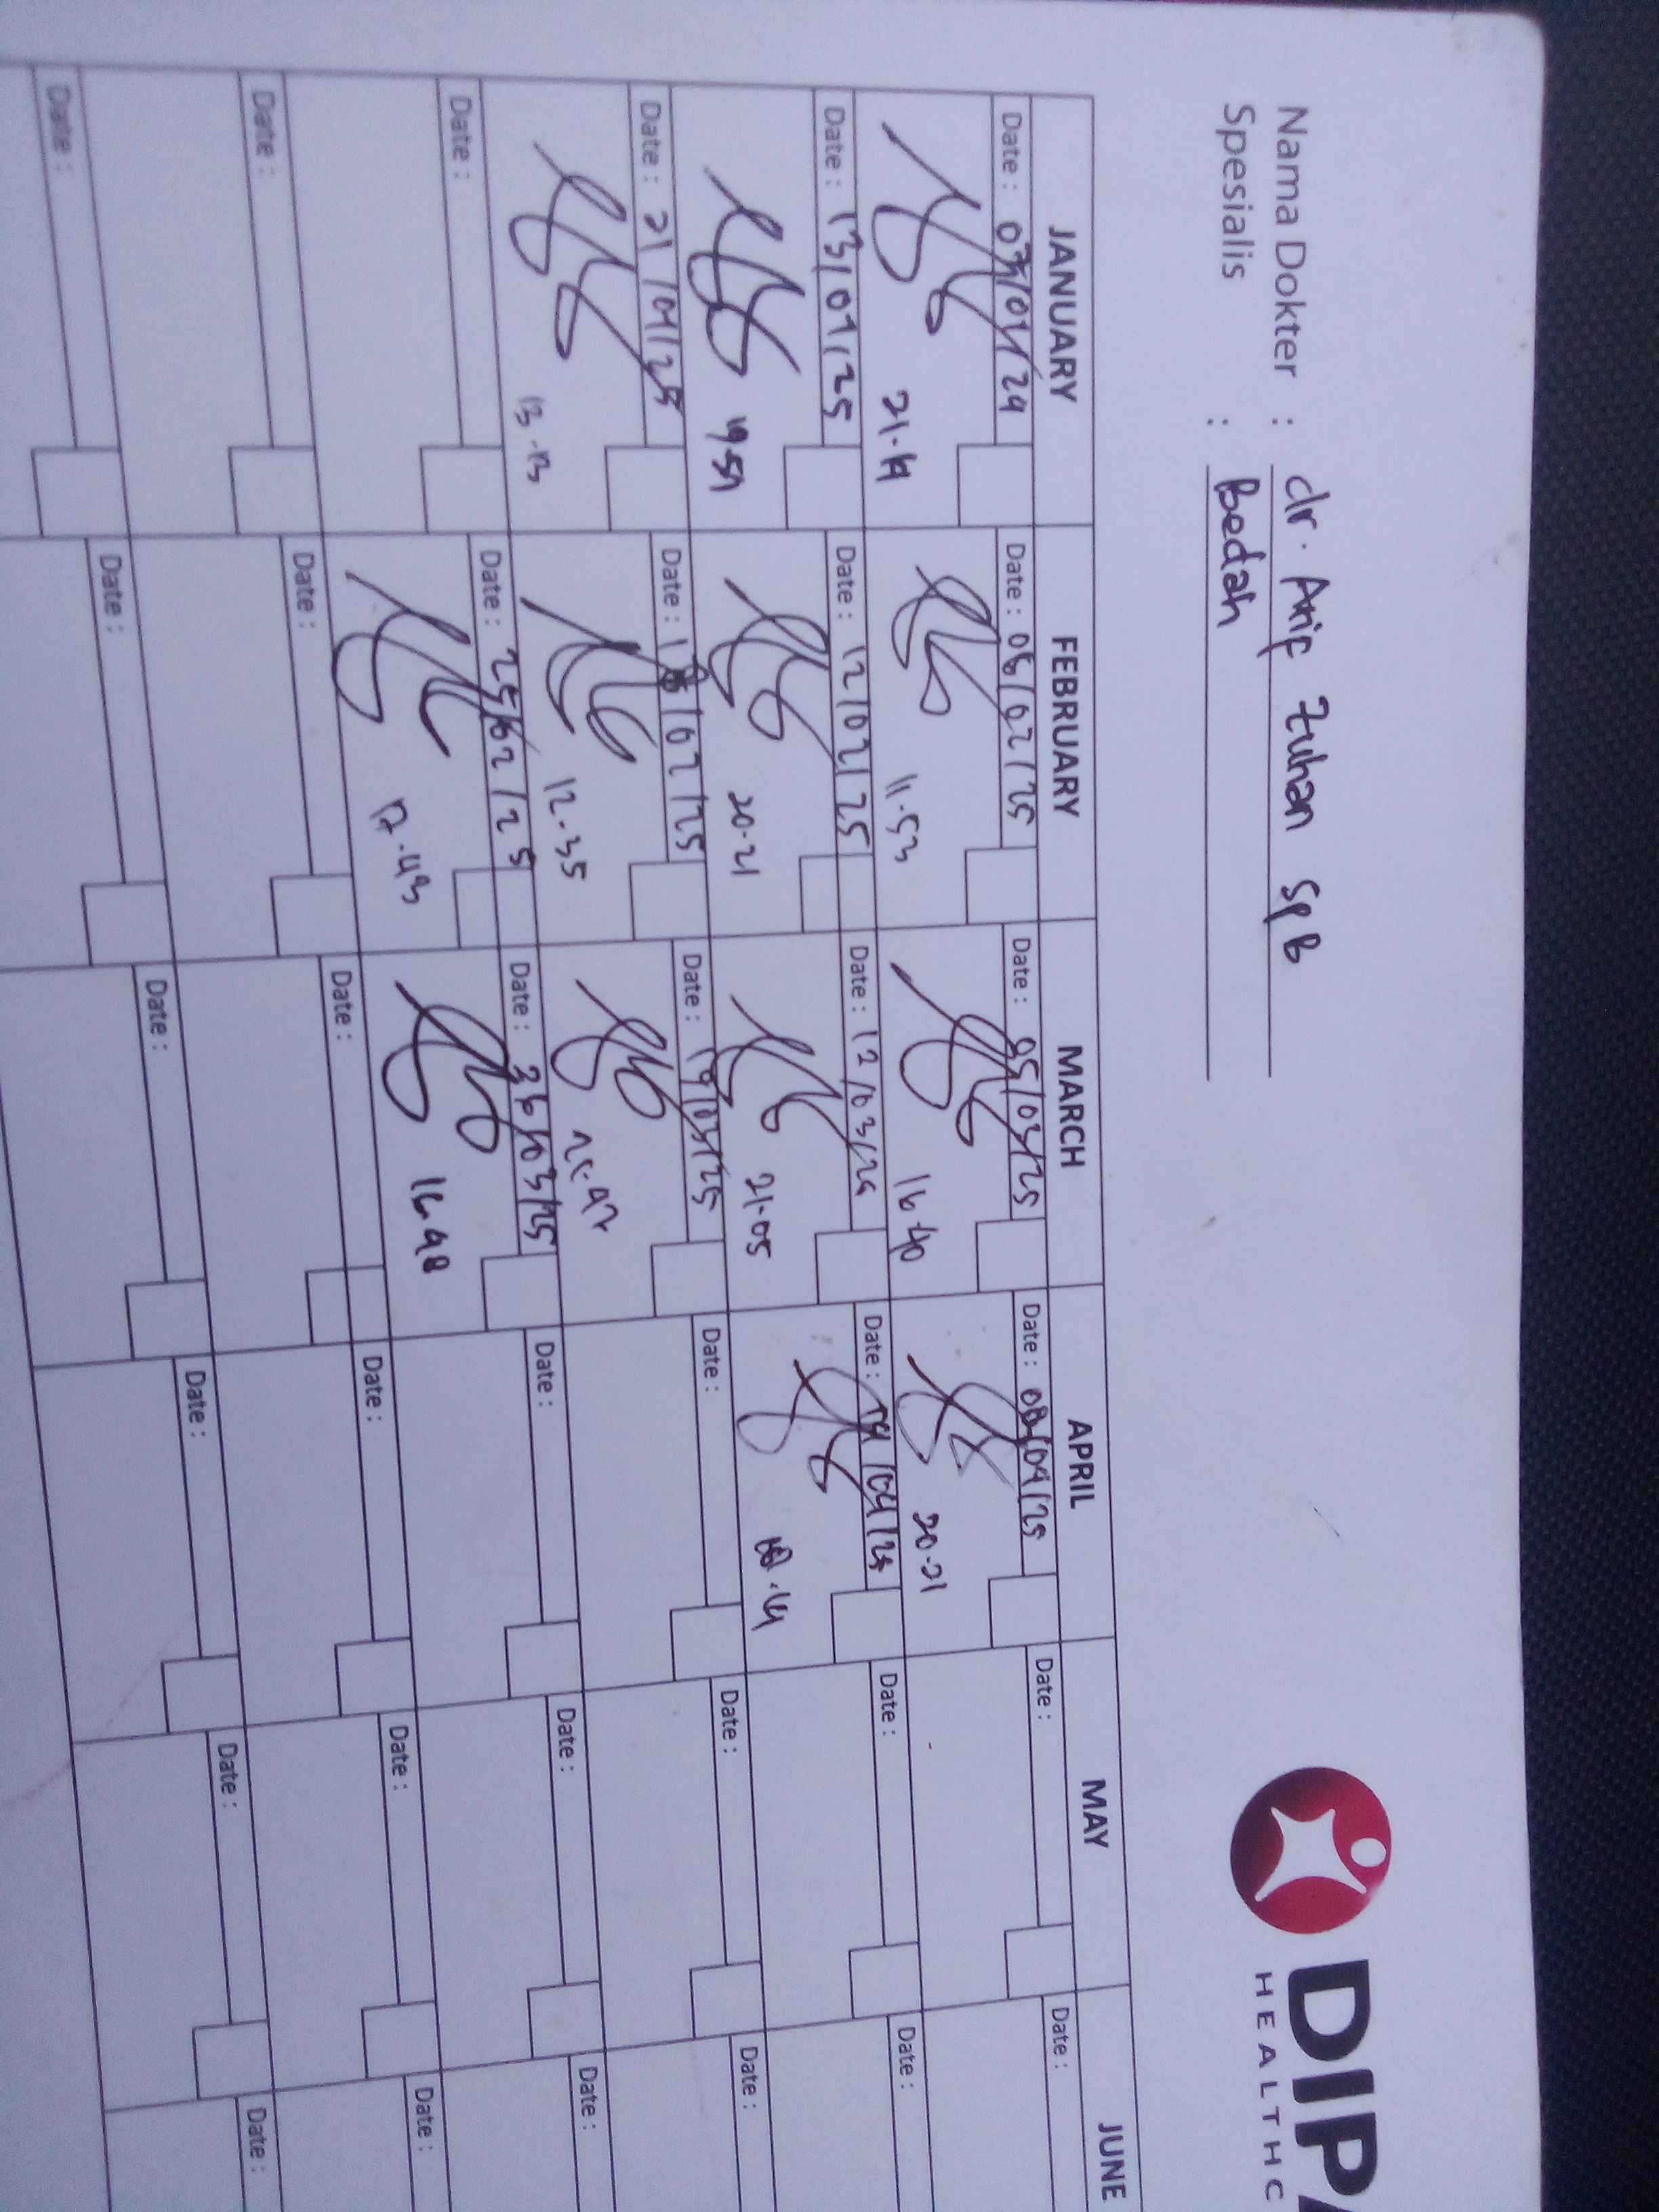 DIPA
HEALTHC
Nama Dokter : dr. Arip Zuhan SpB
Spesialis : Bedah
JANUARY FEBRUARY MARCH APRIL MAY JUNE
Date : 03/01/24 Date : 06/02/25 Date : 05/03/25 Date : 08/04/25 Date : Date :
21.19 11.53 16.40 20.21
Date : 13/01/25 Date : 12/02/25 Date : 12/03/25 Date : 14/04/25 Date : Date :
19.59 20.21 21.05
Date : 21/01/25 Date : 18/02/25 Date : 19/03/25 Date : Date : Date :
13.13 12.35
Date : Date : 25/02/25 Date : 26/03/25 Date : Date : Date :
17.43 16.48
Date : Date : Date : Date : Date : Date :
Date : Date : Date : Date : Date : Date :
Date :